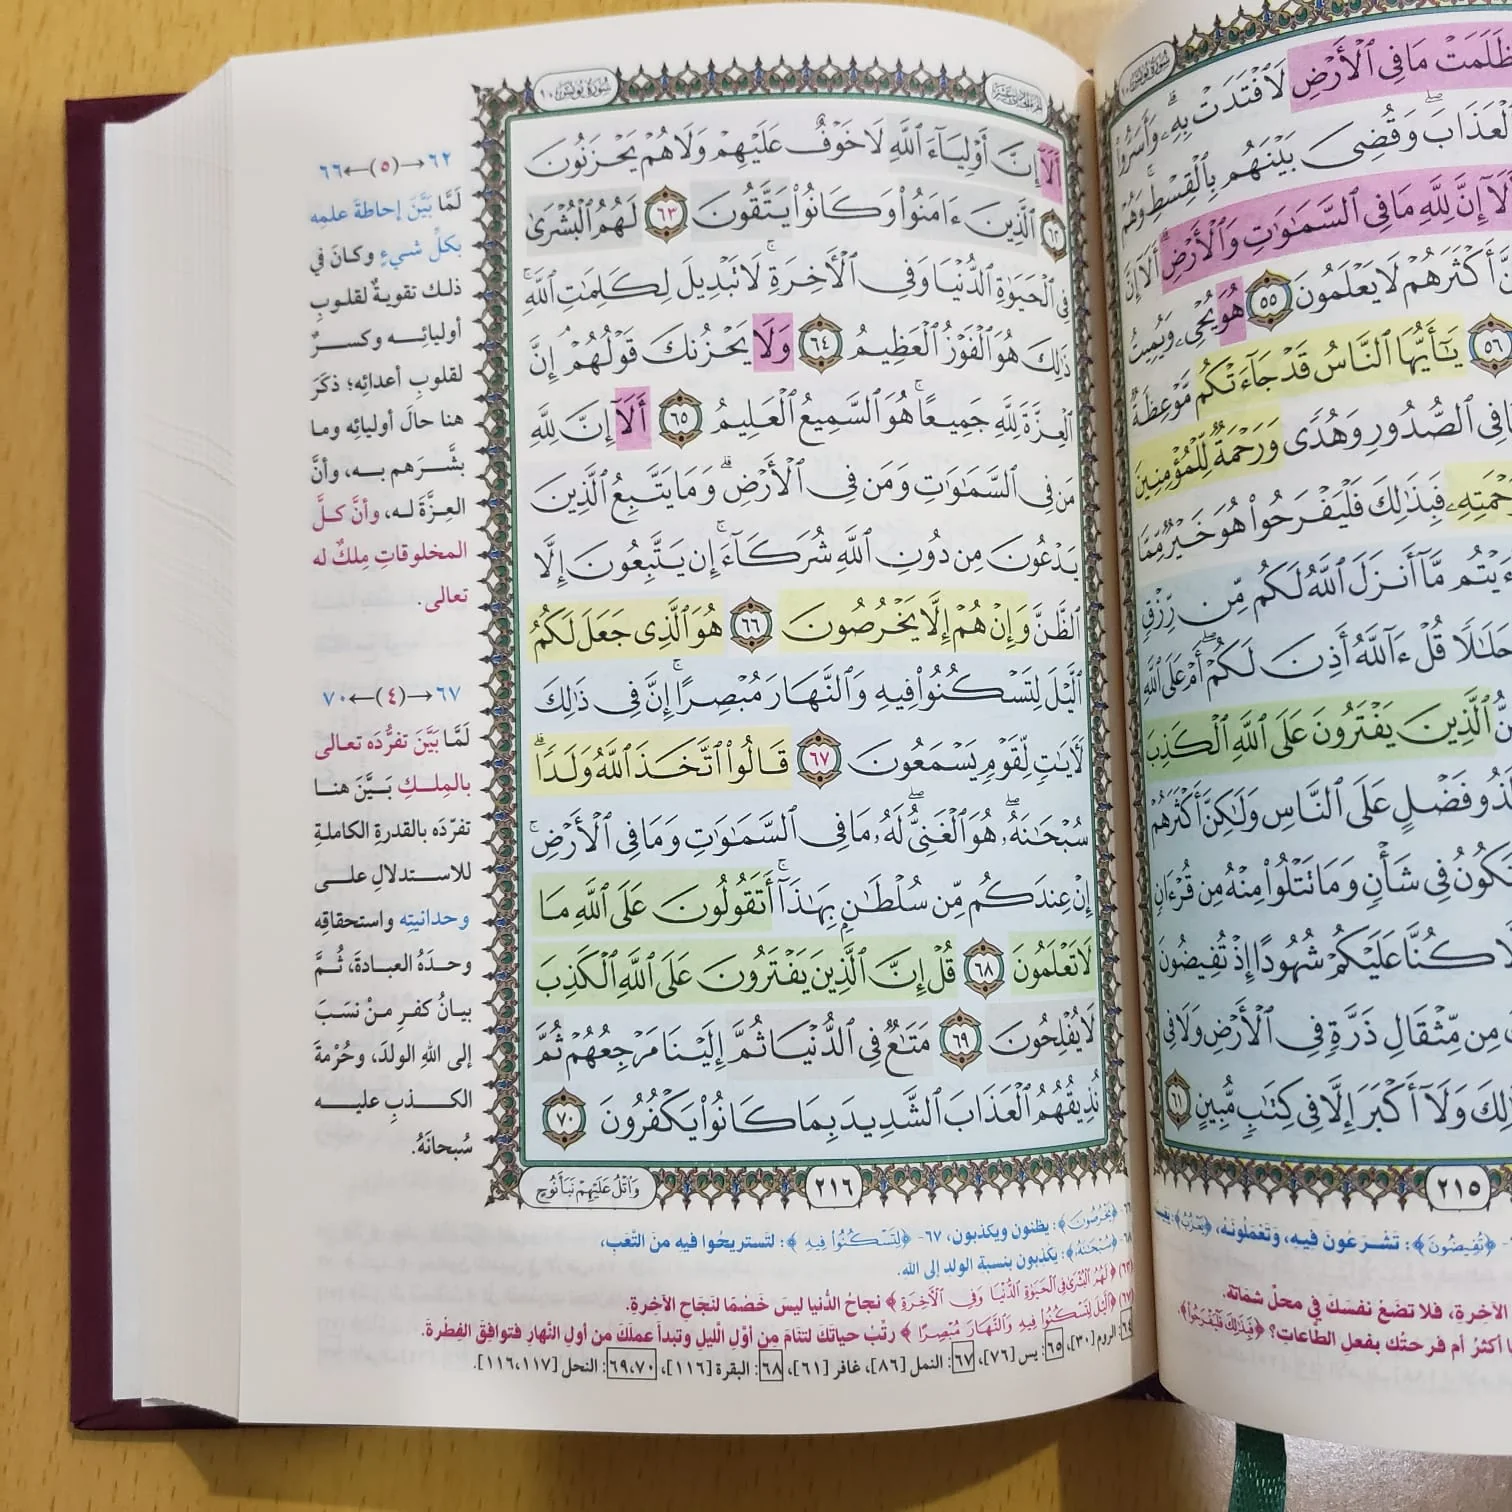 ظَلَمَتْ مَا فِى ٱلْأَرْضِ لَٱفْتَدَتْ بِهِۦۗ وَأَسَرُّوا۟
ٱلْعَذَابَۖ وَقُضِىَ بَيْنَهُم بِٱلْقِسْطِۚ وَهُمْ
أَلَآ إِنَّ لِلَّهِ مَا فِى ٱلسَّمَٰوَٰتِ وَٱلْأَرْضِۗ أَلَآ إِنَّ
أَكْثَرَهُمْ لَا يَعْلَمُونَ ٥٥ هُوَ يُحْىِۦ وَيُمِيتُ
٥٦ يَٰٓأَيُّهَا ٱلنَّاسُ قَدْ جَآءَتْكُم مَّوْعِظَةٌ
فِى ٱلصُّدُورِ وَهُدًى وَرَحْمَةٌ لِّلْمُؤْمِنِينَ
فَبِذَٰلِكَ فَلْيَفْرَحُوا۟ هُوَ خَيْرٌ مِّمَّا
مَّآ أَنزَلَ ٱللَّهُ لَكُم مِّن رِّزْقٍ
حَلَٰلًا قُلْ ءَآللَّهُ أَذِنَ لَكُمْۖ أَمْ عَلَى ٱللَّهِ
ٱلَّذِينَ يَفْتَرُونَ عَلَى ٱللَّهِ ٱلْكَذِبَ
فَضْلٍ عَلَى ٱلنَّاسِ وَلَٰكِنَّ أَكْثَرَهُمْ
فِى شَأْنٍ وَمَا تَتْلُوا۟ مِنْهُ مِن قُرْءَانٍ
كُنَّا عَلَيْكُمْ شُهُودًا إِذْ تُفِيضُونَ
مِن مِّثْقَالِ ذَرَّةٍ فِى ٱلْأَرْضِ وَلَا فِى
وَلَآ أَكْبَرَ إِلَّا فِى كِتَٰبٍ مُّبِينٍ ٦١
٢١٥
﴿تُفِيضُونَ﴾: تَشْرَعُونَ فِيهِ، وَتَعْمَلُونَهُ،
الآخِرةِ، فلا تضَعْ نفسَكَ في محلِّ شَمَاتة.
أكثرُ أم فرحتُك بفعلِ الطَّاعاتِ؟ ﴿فَبِذَٰلِكَ فَلْيَفْرَحُوا۟﴾.
سُورَةُ يُونُسَ ١٠
أَلَآ إِنَّ أَوْلِيَآءَ ٱللَّهِ لَا خَوْفٌ عَلَيْهِمْ وَلَا هُمْ يَحْزَنُونَ
٦٢ ٱلَّذِينَ ءَامَنُوا۟ وَكَانُوا۟ يَتَّقُونَ ٦٣ لَهُمُ ٱلْبُشْرَىٰ
فِى ٱلْحَيَوٰةِ ٱلدُّنْيَا وَفِى ٱلْءَاخِرَةِۚ لَا تَبْدِيلَ لِكَلِمَٰتِ ٱللَّهِۚ
ذَٰلِكَ هُوَ ٱلْفَوْزُ ٱلْعَظِيمُ ٦٤ وَلَا يَحْزُنكَ قَوْلُهُمْۘ إِنَّ
ٱلْعِزَّةَ لِلَّهِ جَمِيعًاۚ هُوَ ٱلسَّمِيعُ ٱلْعَلِيمُ ٦٥ أَلَآ إِنَّ لِلَّهِ
مَن فِى ٱلسَّمَٰوَٰتِ وَمَن فِى ٱلْأَرْضِۗ وَمَا يَتَّبِعُ ٱلَّذِينَ
يَدْعُونَ مِن دُونِ ٱللَّهِ شُرَكَآءَۚ إِن يَتَّبِعُونَ إِلَّا
ٱلظَّنَّ وَإِنْ هُمْ إِلَّا يَخْرُصُونَ ٦٦ هُوَ ٱلَّذِى جَعَلَ لَكُمُ
ٱلَّيْلَ لِتَسْكُنُوا۟ فِيهِ وَٱلنَّهَارَ مُبْصِرًاۚ إِنَّ فِى ذَٰلِكَ
لَءَايَٰتٍ لِّقَوْمٍ يَسْمَعُونَ ٦٧ قَالُوا۟ ٱتَّخَذَ ٱللَّهُ وَلَدًاۗ
سُبْحَٰنَهُۥۖ هُوَ ٱلْغَنِىُّۖ لَهُۥ مَا فِى ٱلسَّمَٰوَٰتِ وَمَا فِى ٱلْأَرْضِۚ
إِنْ عِندَكُم مِّن سُلْطَٰنٍۭ بِهَٰذَآۚ أَتَقُولُونَ عَلَى ٱللَّهِ مَا
لَا تَعْلَمُونَ ٦٨ قُلْ إِنَّ ٱلَّذِينَ يَفْتَرُونَ عَلَى ٱللَّهِ ٱلْكَذِبَ
لَا يُفْلِحُونَ ٦٩ مَتَٰعٌ فِى ٱلدُّنْيَا ثُمَّ إِلَيْنَا مَرْجِعُهُمْ ثُمَّ
نُذِيقُهُمُ ٱلْعَذَابَ ٱلشَّدِيدَ بِمَا كَانُوا۟ يَكْفُرُونَ ٧٠
٢١٦
وَٱتْلُ عَلَيْهِمْ نَبَأَ نُوحٍ
٦٢→(٥)←٦٦
لَمَّا بَيَّنَ إحاطةَ علمِه
بكلِّ شيءٍ وكانَ في
ذلك تقويةٌ لقلوبِ
أوليائِه وكسرٌ
لقلوبِ أعدائِه؛ ذكَرَ
هنا حالَ أوليائِه وما
بشَّرَهم به، وأنَّ
العِزَّةَ له، وأنَّ كلَّ
المخلوقاتِ مِلكٌ له
تعالى.
٦٧→(٤)←٧٠
لَمَّا بَيَّنَ تفرُّدَه تعالى
بالمِلكِ بَيَّنَ هنا
تفرّدَه بالقدرةِ الكاملةِ
للاستدلالِ على
وحدانيتِه واستحقاقِه
وحدَهُ العبادةَ، ثُمَّ
بيانُ كفرِ منْ نسَبَ
إلى اللهِ الولدَ، وحُرْمةَ
الكذبِ عليه
سُبحانَهُ.
﴿يَخْرُصُونَ﴾: يظنون ويكذبون، ٦٧- ﴿لِتَسْكُنُوا۟ فِيهِ﴾: لتستريحُوا فيهِ منَ التَّعَبِ،
﴿سُبْحَٰنَهُ﴾: يكذبون بنسبة الولدِ إلى اللهِ.
﴿لَهُمُ ٱلْبُشْرَىٰ فِى ٱلْحَيَوٰةِ ٱلدُّنْيَا وَفِى ٱلْءَاخِرَةِ﴾ نجاحُ الدُّنيا ليسَ خَصْمًا لنَجَاحِ الآخِرةِ.
﴿ٱلَّيْلَ لِتَسْكُنُوا۟ فِيهِ وَٱلنَّهَارَ مُبْصِرًا﴾ رتِّبْ حياتَكَ لتنَامَ مِن أوَّلِ الليلِ وتبدأَ عملَكَ من أولِ النَّهارِ فتوافقَ الفِطْرةَ.
الروم [٣٠]، ٦٥: يس [٧٦]، ٦٧: النمل [٨٦]، غافر [٦١]، ٦٨: البقرة [١١٦]، ٦٩،٧٠: النحل [١١٦،١١٧].